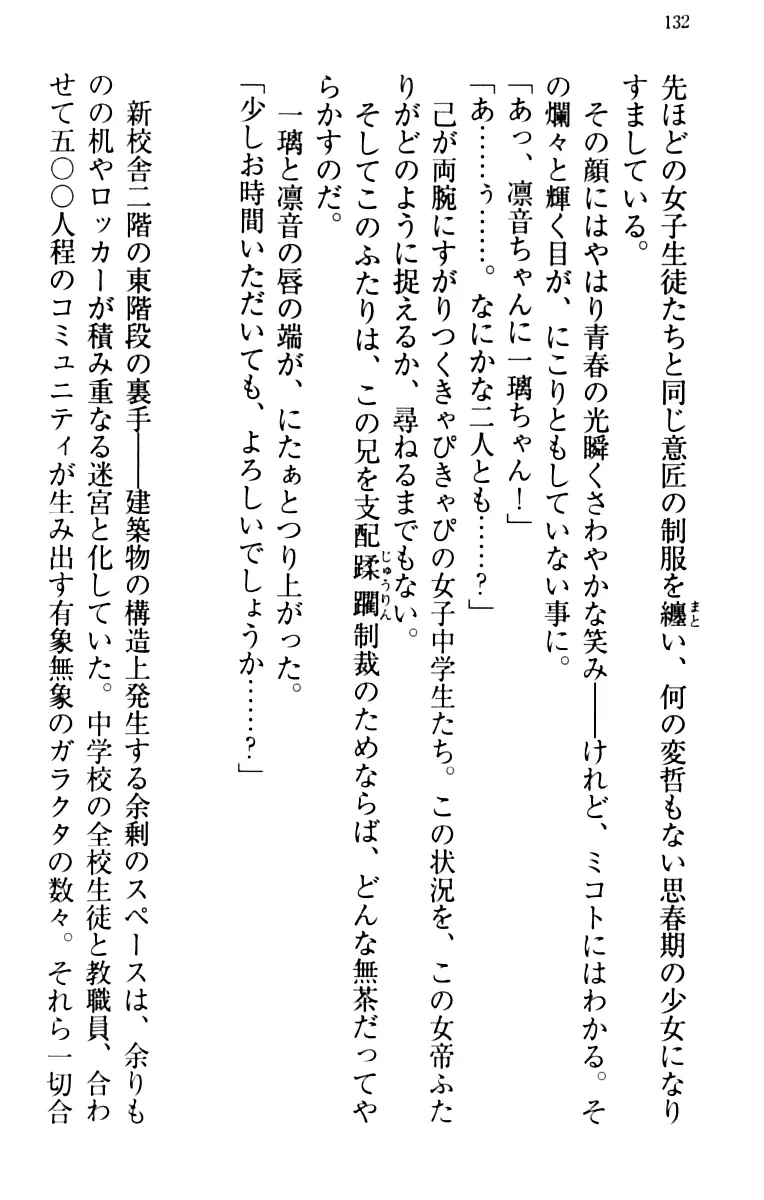 132
先ほどの女子生徒たちと同じ意匠の制服を纏い、何の変哲もない思春期の少女になり
すましている。
その顔にはやはり青春の光瞬くさわやかな笑み――けれど、ミコトにはわかる。そ
の爛々と輝く目が、にこりともしていない事に。
「あっ、凛音ちゃんに一璃ちゃん！」
「あ……ぅ……。なにかな二人とも……？」
己が両腕にすがりつくきゃぴきゃぴの女子中学生たち。この状況を、この女帝ふた
りがどのように捉えるか、尋ねるまでもない。
そしてこのふたりは、この兄を支配蹂躙制裁のためならば、どんな無茶だってや
らかすのだ。
一璃と凛音の唇の端が、にたぁとつり上がった。
「少しお時間いただいても、よろしいでしょうか……？」
新校舎二階の東階段の裏手――建築物の構造上発生する余剰のスペースは、余りも
のの机やロッカーが積み重なる迷宮と化していた。中学校の全校生徒と教職員、合わ
せて五〇〇人程のコミュニティが生み出す有象無象のガラクタの数々。それら一切合